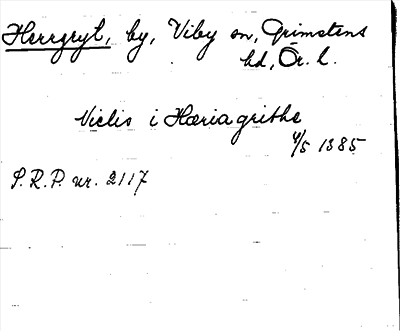 Herrgryt, by, Viby sn, Grimstens
hd, Ör. l.
Niclis i Hæriagrithe
4/5 1385
S.R.P. nr. 2117